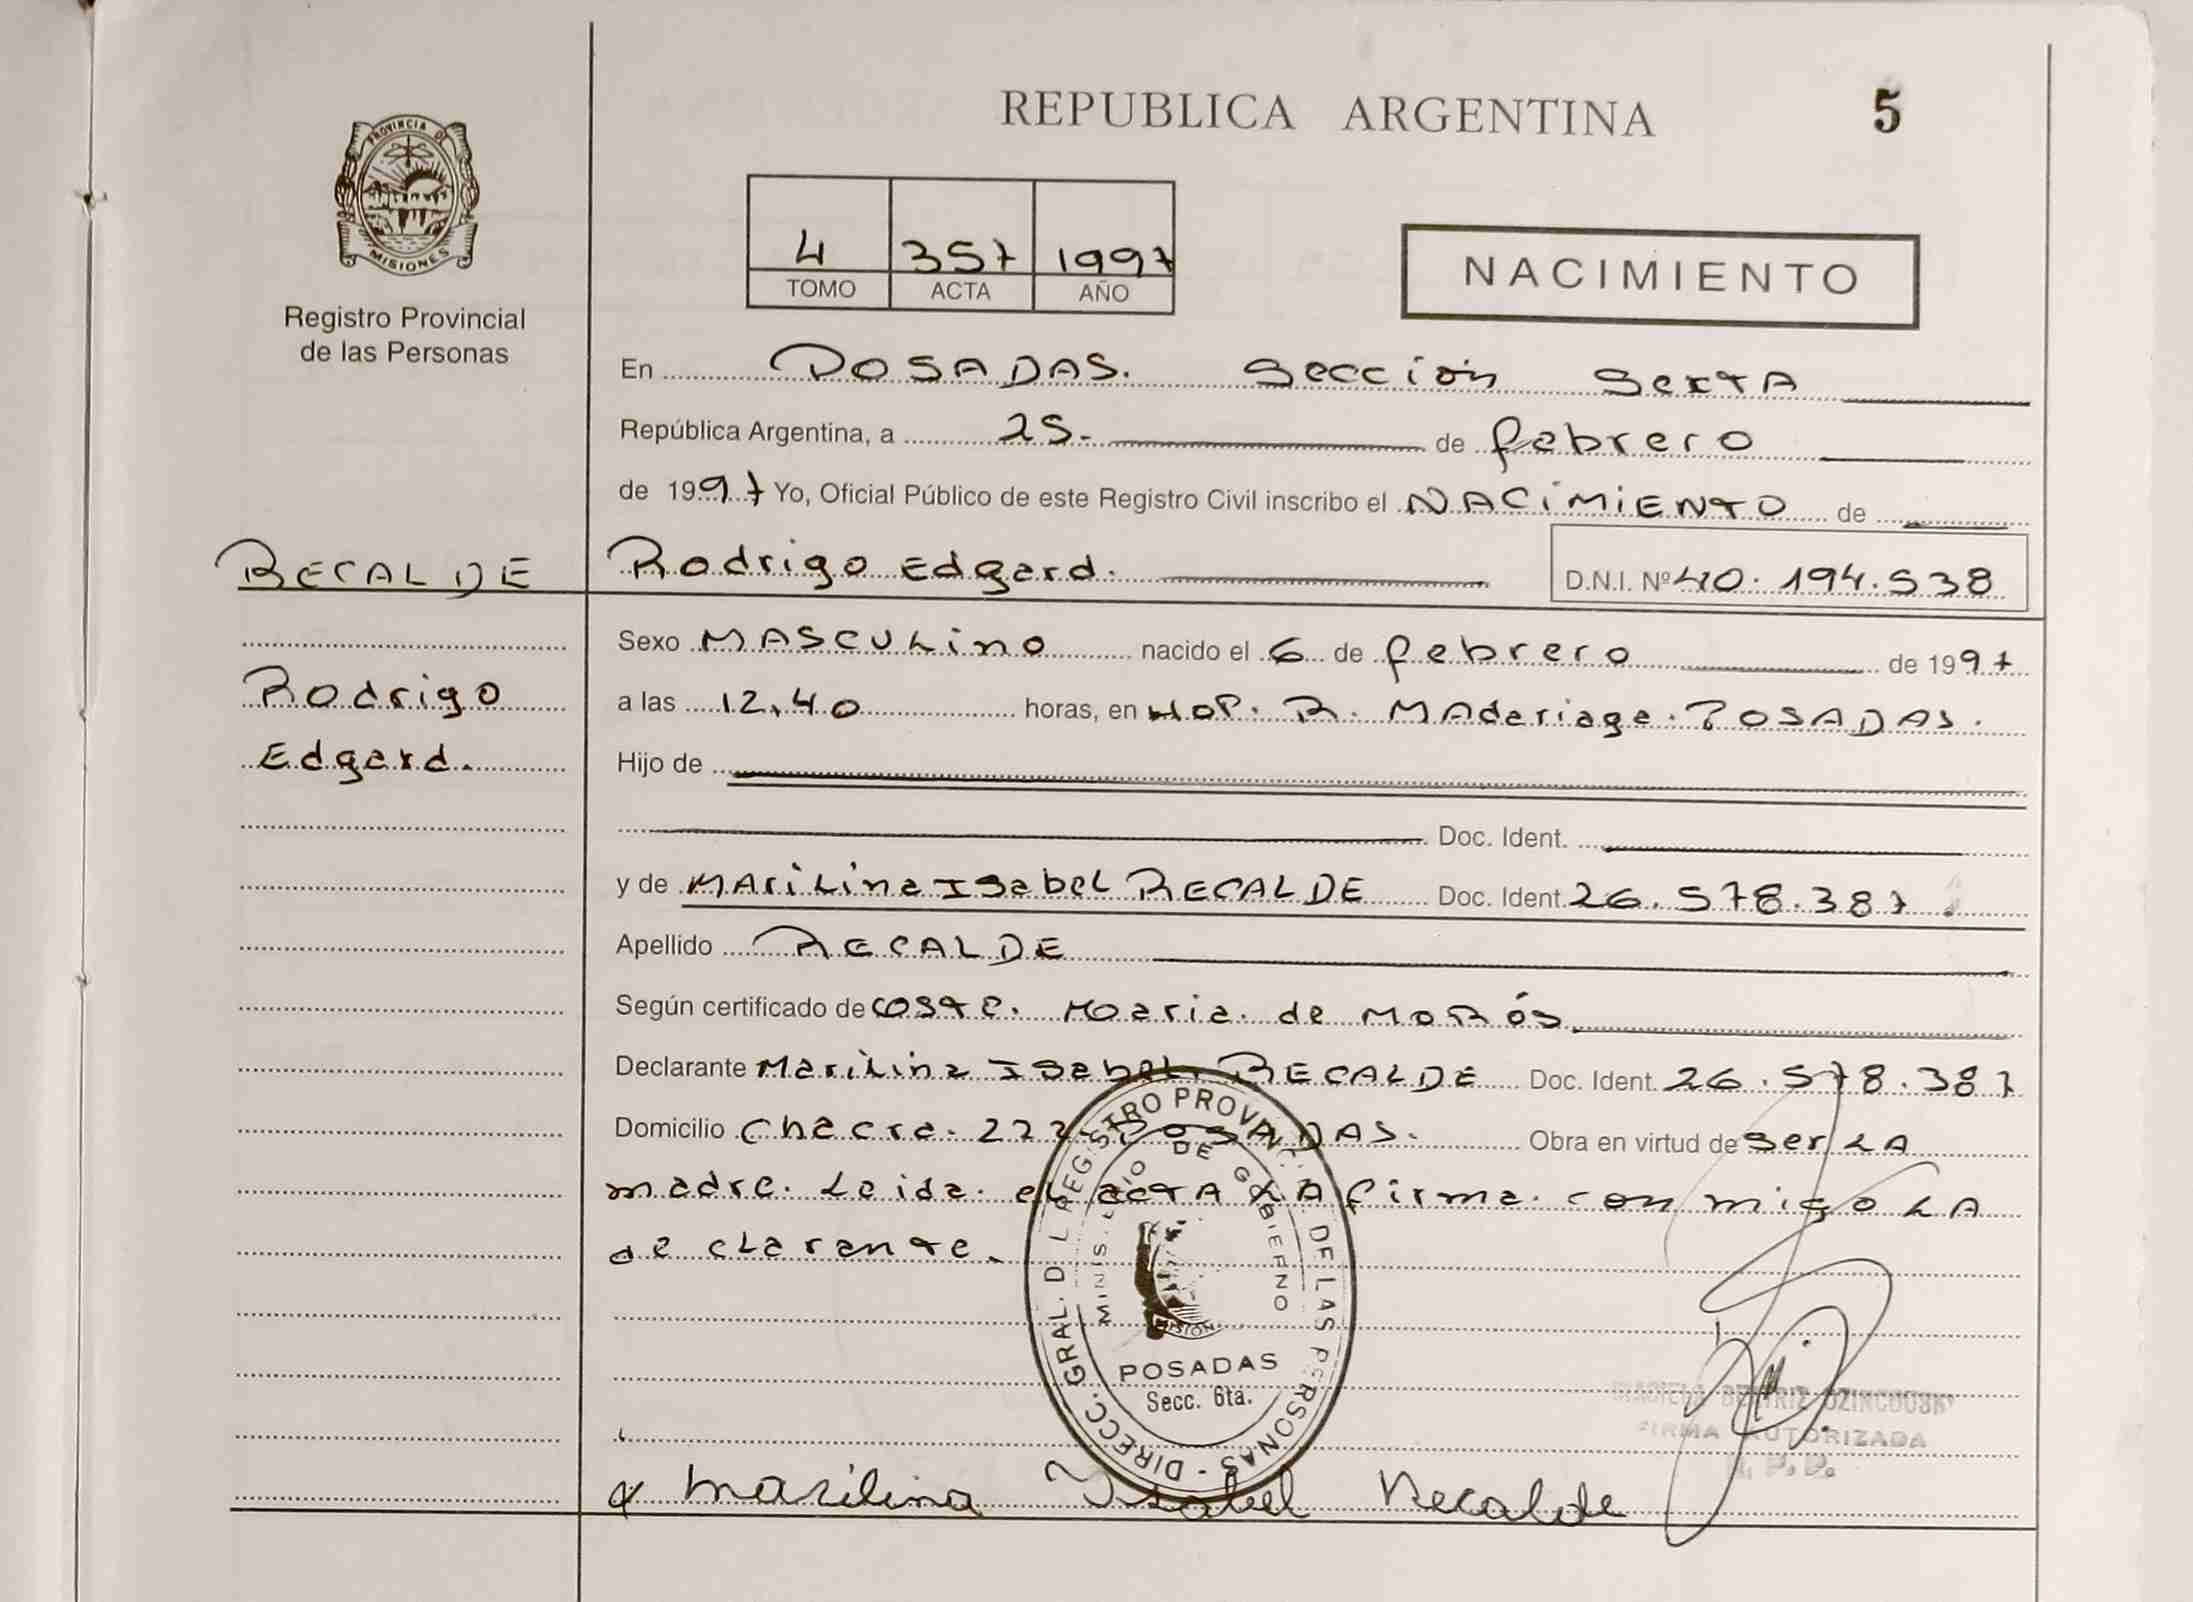 REPUBLICA ARGENTINA
5
PROVINCIA DE
MISIONES
Registro Provincial
de las Personas
4 357 1997
TOMO ACTA AÑO
NACIMIENTO
En POSADAS. Sección Sexta
República Argentina, a 25.- de febrero
de 1997 Yo, Oficial Público de este Registro Civil inscribo el NACIMIENTO de
RECALDE Rodrigo Edgard. D.N.I. Nº 40.194.538
Sexo MASCULino nacido el 6 de febrero de 1997
Rodrigo
a las 12,40 horas, en HOP. R. MAdariaga. POSADAS.
Edgard.
Hijo de
Doc. Ident.
y de MAriLina Isabel RECALDE Doc. Ident. 26.578.387.
Apellido RECALDE
Según certificado de Maria. de
Declarante MariLina Isabel. RECALDE Doc. Ident. 26.578.387
Domicilio Chacra. 222- POSADAS. Obra en virtud de ser LA
madre. Leida. el acta LA firma. conmigo LA
declarante.
DIRECC. GRAL. DEL REGISTRO PROVINC. DE LAS PERSONAS -
MINISTERIO DE GOBIERNO
POSADAS
Secc. 6ta.
BEATRIZ
FIRMA AUTORIZADA
R. P. P.
Marilina Isabel Recalde